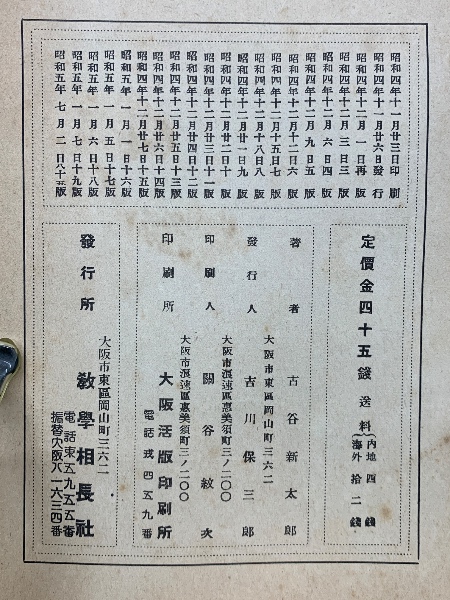 昭和四年十一月廿三日印刷
昭和四年十一月廿六日發行
昭和四年十二月一日再版
昭和四年十二月三日三版
昭和四年十二月六日四版
昭和四年十二月九日五版
昭和四年十二月十二日六版
昭和四年十二月十五日七版
昭和四年十二月十八日八版
昭和四年十二月廿一日九版
昭和四年十二月廿二日十版
昭和四年十二月廿三日十一版
昭和四年十二月廿四日十二版
昭和四年十二月廿五日十三版
昭和四年十二月廿六日十四版
昭和四年十二月廿七日十五版
昭和五年一月一日十六版
昭和五年一月五日十七版
昭和五年一月六日十八版
昭和五年一月七日十九版
昭和五年七月二日八十五版
定價金四十五錢 送料 內地四錢 海外拾二錢
著者 古谷新太郎
大阪市東區岡山町三六二
發行人 吉川保三郎
大阪市浪速區惠美須町三ノ二〇〇
印刷人 關谷紋次
大阪市浪速區惠美須町三ノ二〇〇
印刷所 大阪活版印刷所
電話戎四五九番
大阪市東區岡山町三六二
發行所 教學相長社
電話東五九五五番
振替大阪八一六三四番